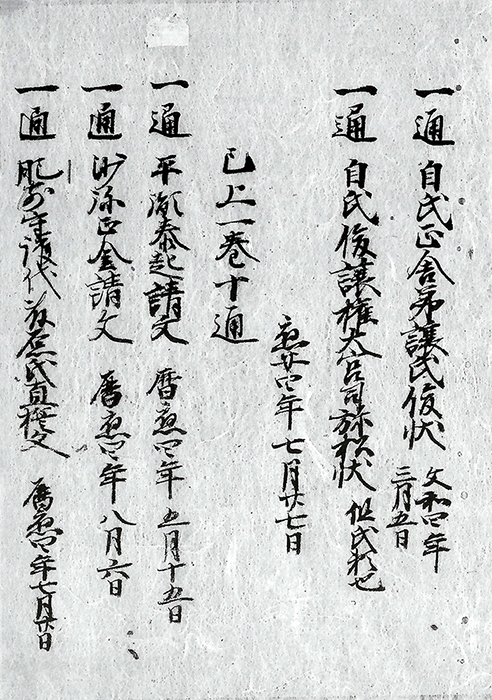 一通 自氏正舎弟譲氏俊状 文和四年
三月五日
一通 自氏俊譲権大宮司 状 但氏
応廿四年七月廿七日
已上一巻十通
一通 平 泰起請文 暦応四年五月十五日
一通 沙弥正全請文 暦応四年八月六日
一通 肥 請代 氏直 文 暦応四年七月廿日